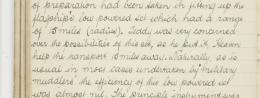 of preparation had been taken in fitting up the
flagship's low powered set which had a range
of 15 miles (radius). Teddy was very concerned
over the possibilities of this set, as he put it, Heaven
help the transport 15 miles away. Naturally, as is
usual in most cases undertaken by military
muddlers the efficiency of the low powered set
was almost nil. The principle instrument was